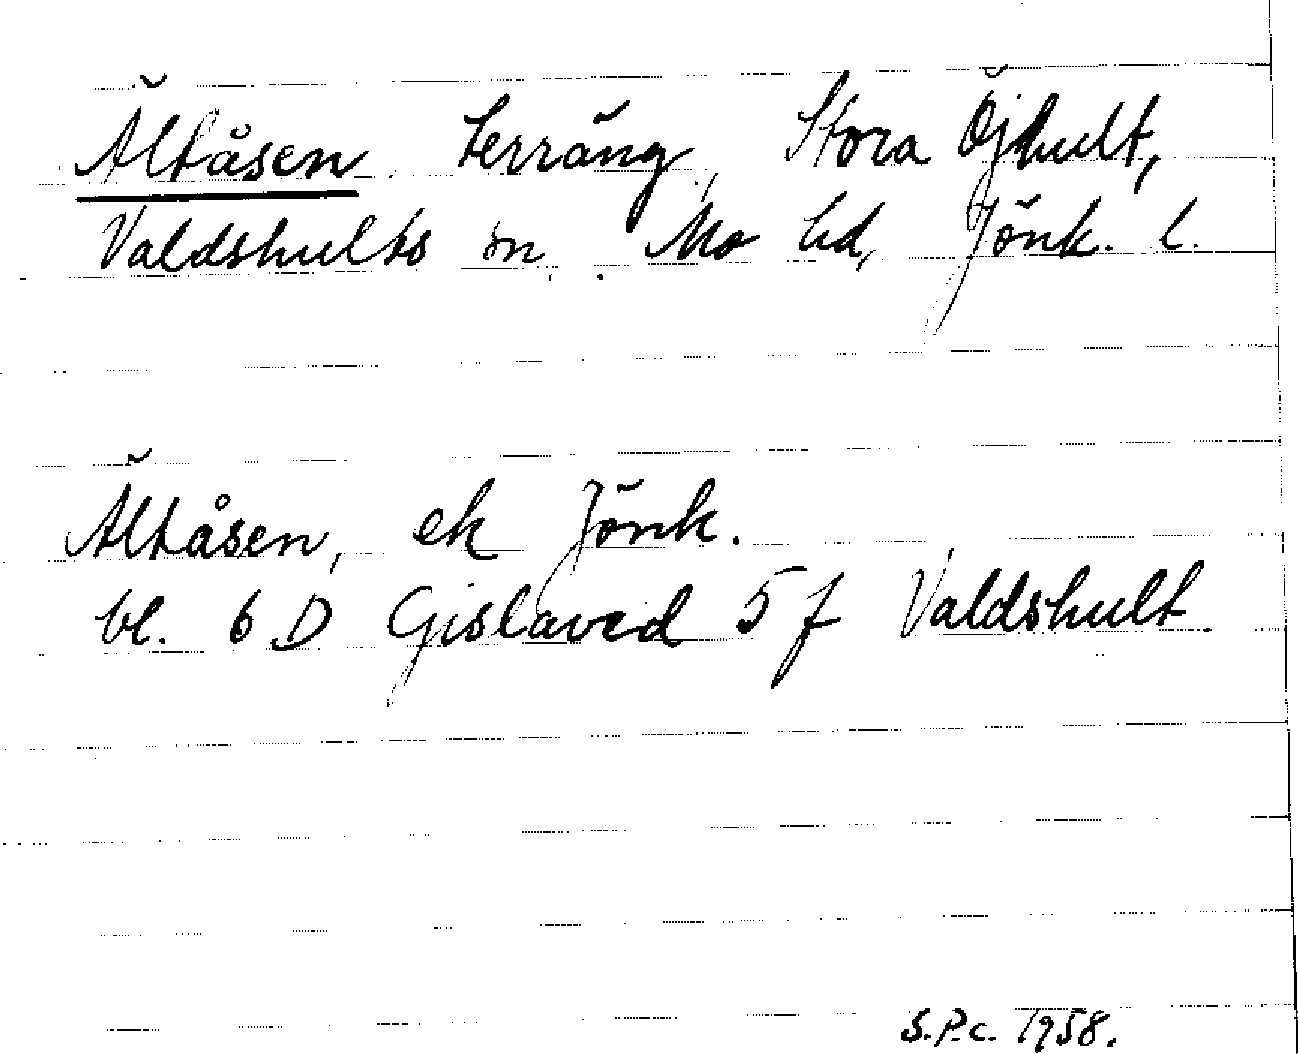 Ältåsen terräng, Stora Öjhult,
Valdshults sn, Mo hd, Jönk. l.
Ältåsen, ek Jönk.
bl. 6 D Gislaved 5 f Valdshult
S.P.C. 1958.